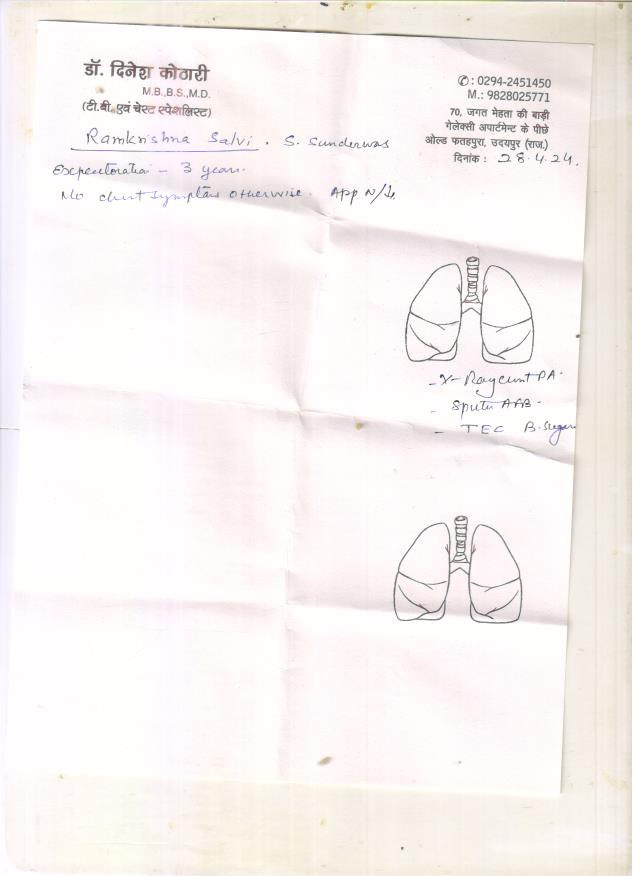 डॉ. दिनेश कोठारी
M.B.,B.S.,M.D.
(टी.बी. एवं चेस्ट स्पेशलिस्ट)
✆: 0294-2451450
M.: 9828025771
70, जगत मेहता की बाड़ी
गेलेक्सी अपार्टमेन्ट के पीछे
ओल्ड फतहपुरा, उदयपुर (राज.)
दिनांक : 28.4.24.
Ramkrishna Salvi. S. Sunderwas
Expectoration - 3 years.
No chest symptoms otherwise. App N/
- X-Ray chest PA.
- Sputum AFB.
- TEC B. Sugar